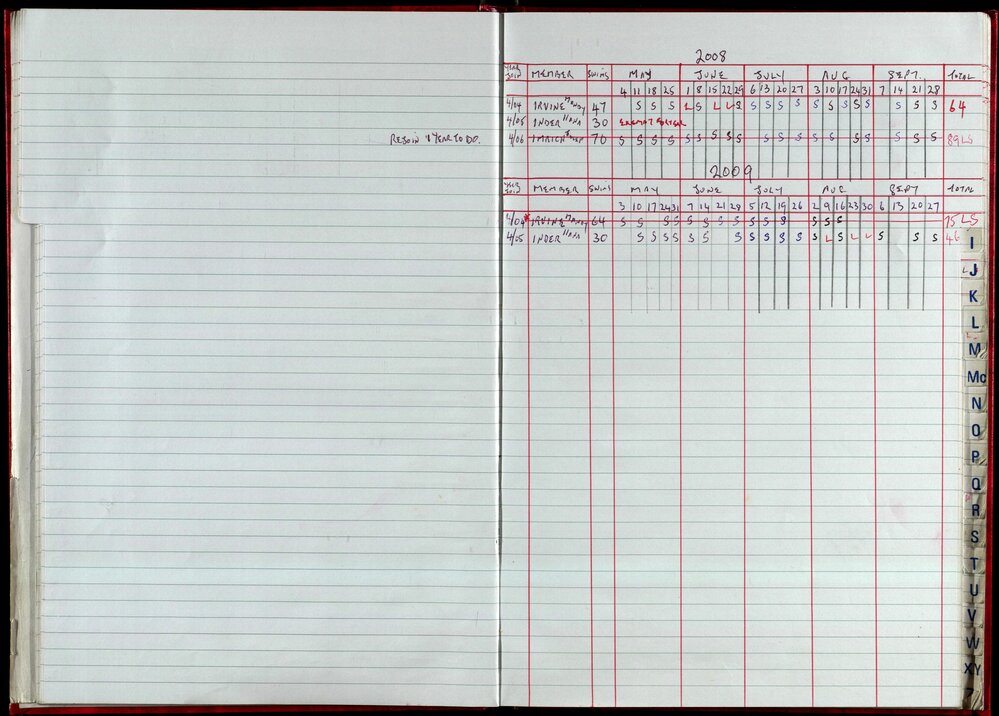 2008
YEAR JOIN MEMBER SWIMS MAY JUNE JULY AUG SEPT. TOTAL
4 11 18 25 1 8 15 22 29 6 13 20 27 3 10 17 24 31 7 14 21 28
4/04 IRVINE MANDY 47 S S S L S L L S S S S S S S S S S S S S 64
4/05 INDER ILANA 30
REJOIN 1 YEAR TO DO.
4/06 70 S S S S S S S S S S S S S S S S S S S 89 LS
2009
YEAR JOIN MEMBER SWIMS MAY JUNE JULY AUG SEPT TOTAL
3 10 17 24 31 7 14 21 28 5 12 19 26 2 9 16 23 30 6 13 20 27
4/04 IRVINE MANDY 64 S S S S S S S S S S S S S S 75 LS
4/05 INDER ILANA 30 S S S S S S S S S S S S L S L L S S S 46
I
J
K
L
M
Mc
N
O
P
Q
R
S
T
U
V
W
XY
Z